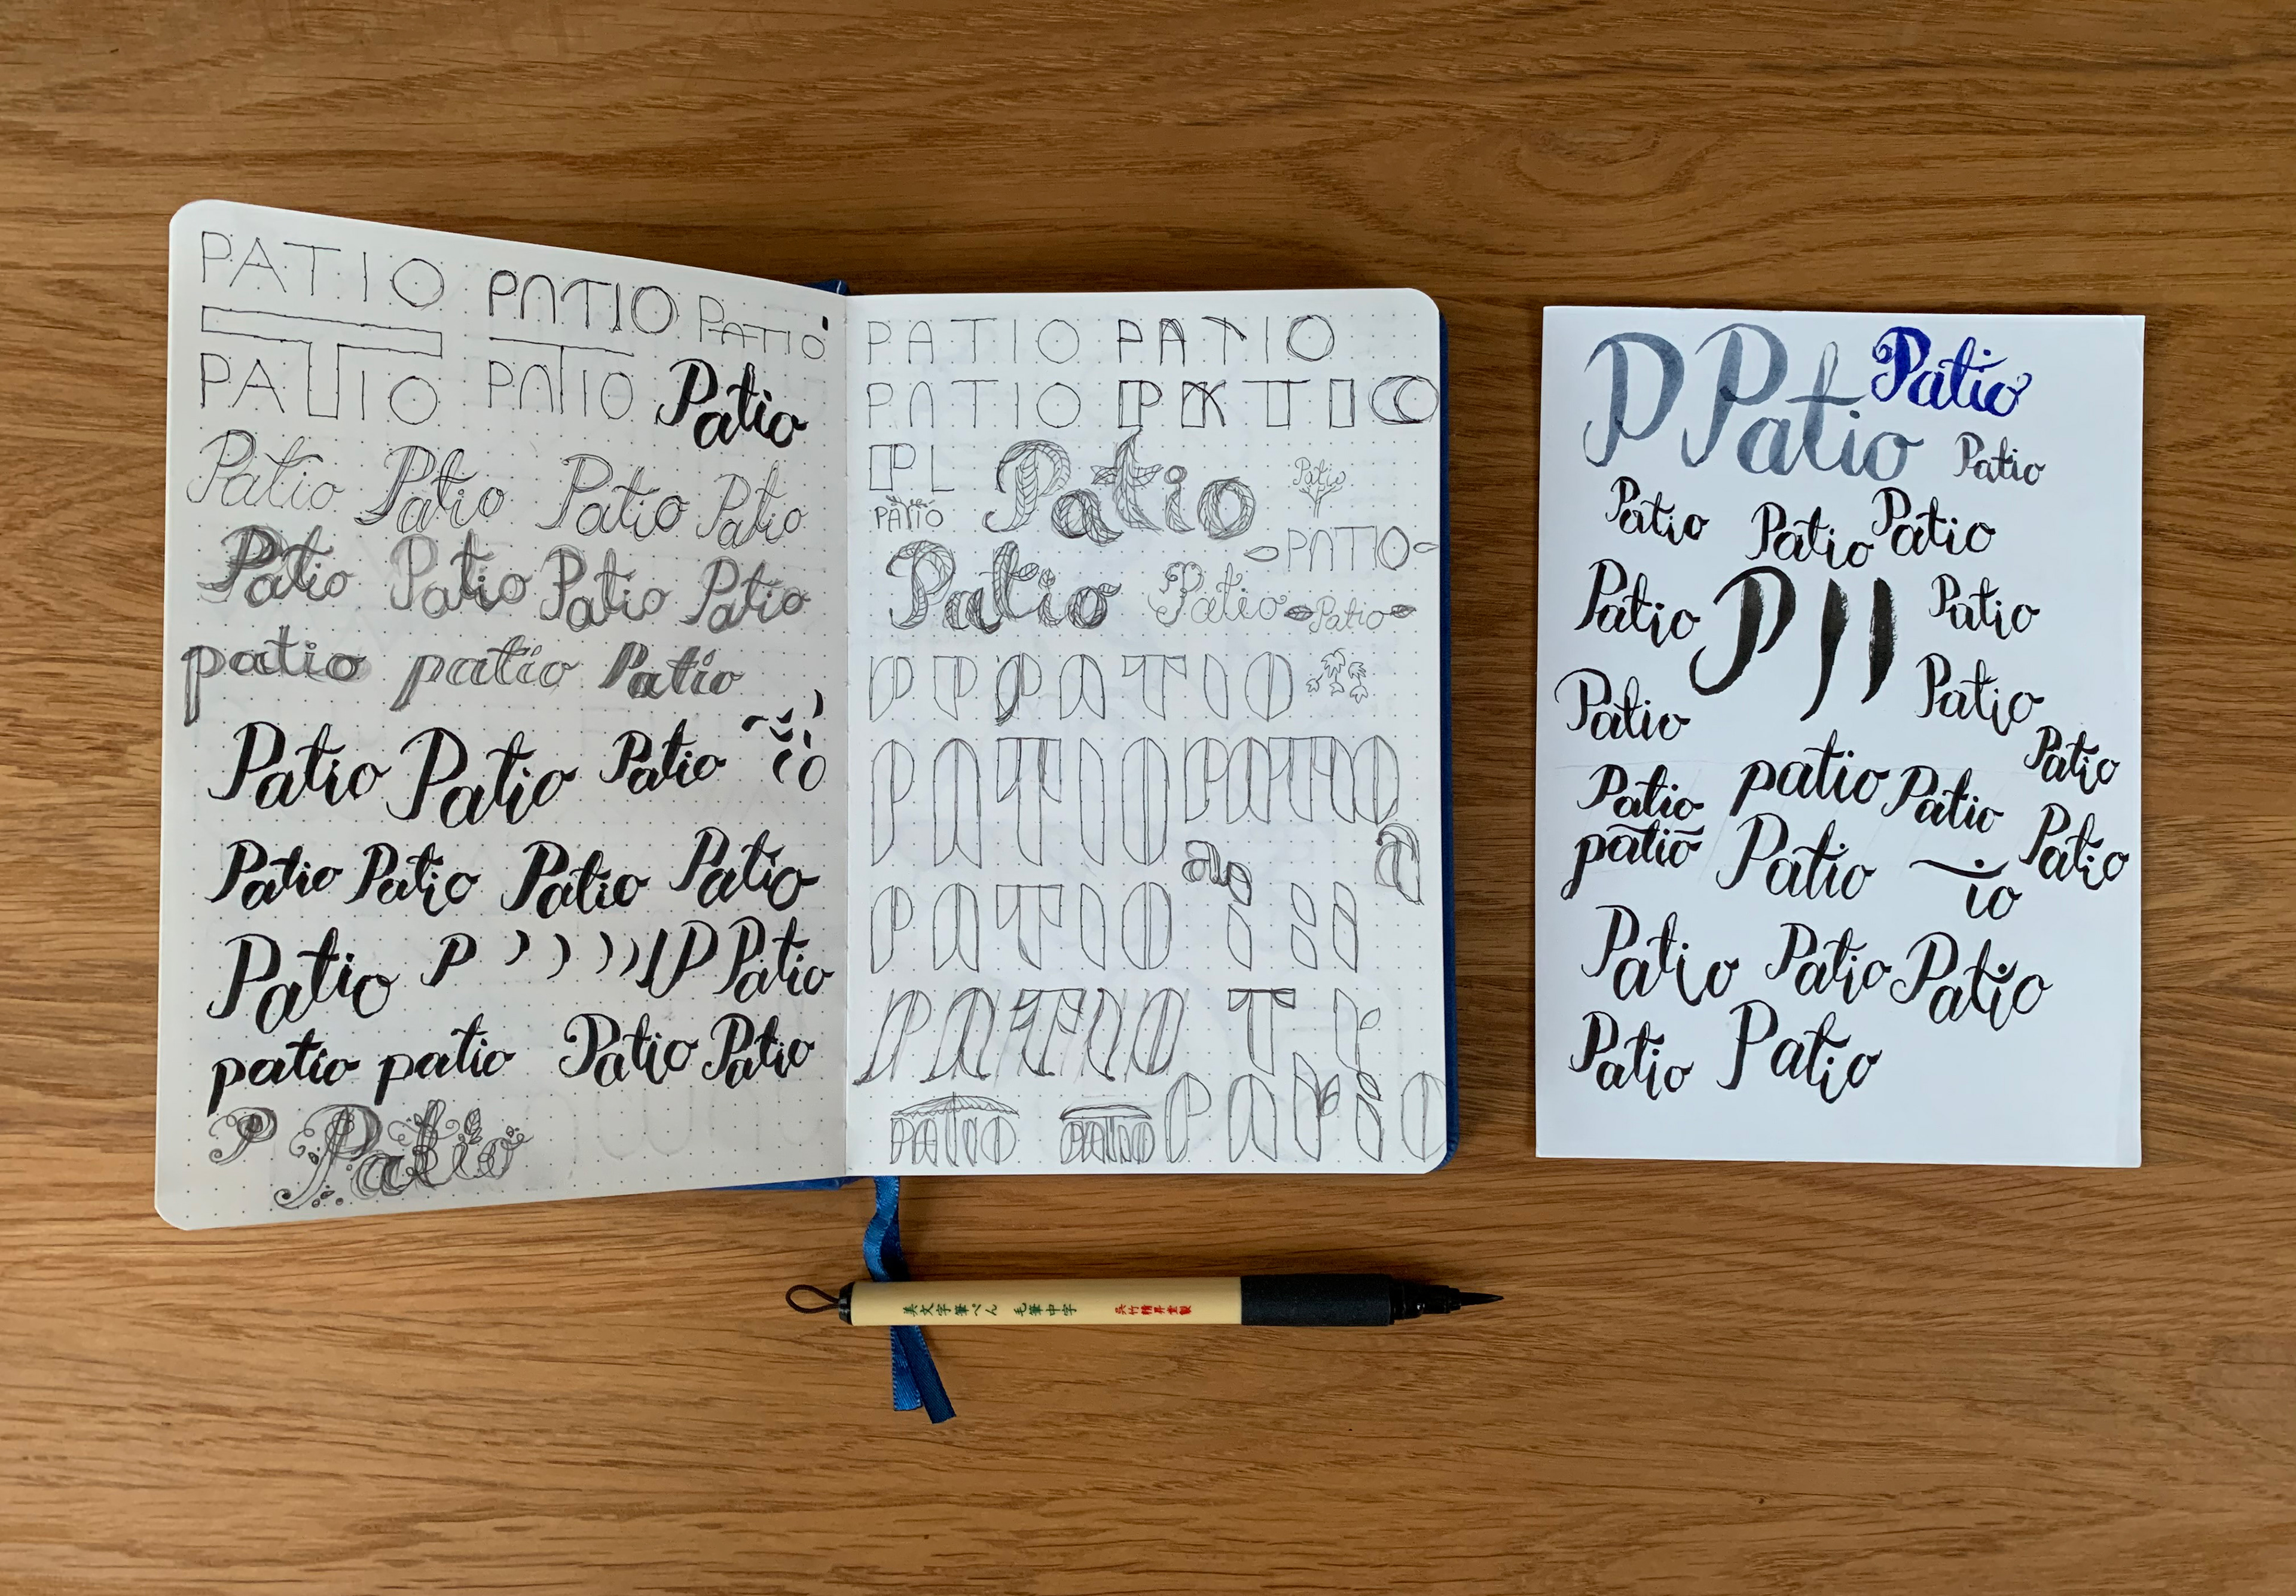 PATIO PATIO PATIO
PATIO PATIO Patio
Patio Patio Patio Patio
Patio Patio Patio Patio
patio patio Patio
Patio Patio Patio io
Patio Patio Patio Patio
Patio P P Patio
patio patio Patio Patio
P Patio
PATIO PATIO
PATIO PATIO
P L Patio Patio
PATIO PATIO
Patio Patio Patio
P P PATIO
PATIO PATIO
a a
PATIO
PATIO T
PATIO PATIO PATIO
P Patio Patio
Patio
Patio Patio Patio
Patio P Patio
Patio Patio
Patio
Patio patio Patio
patio Patio io Patio
Patio Patio Patio
Patio Patio
美文字筆ぺん 毛筆中字 呉竹精昇堂製